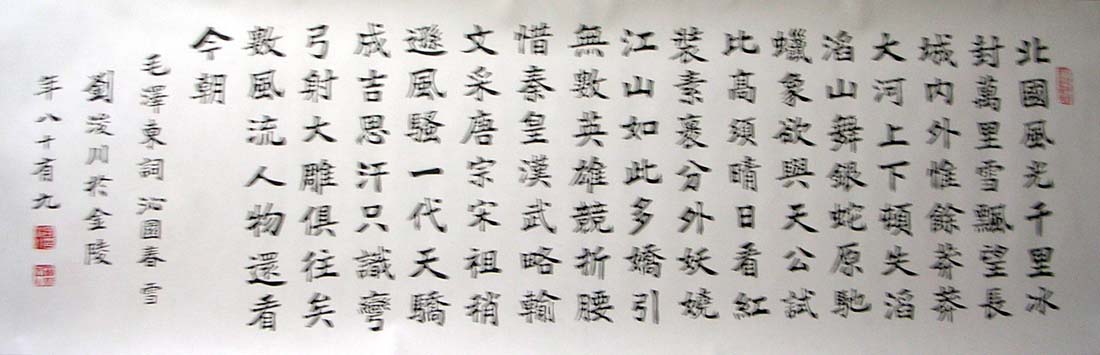 北國風光千里冰
封萬里雪飄望長
城内外惟餘莽莽
大河上下頓失滔
滔山舞銀蛇原馳
蠟象欲與天公試
比高須晴日看紅
裝素裹分外妖嬈
江山如此多嬌引
無數英雄競折腰
惜秦皇漢武略輸
文采唐宗宋祖稍
遜風騷一代天驕
成吉思汗只識彎
弓射大雕俱往矣
數風流人物還看
今朝
毛澤東詞沁園春雪
劉浚川於金陵
年八十有九